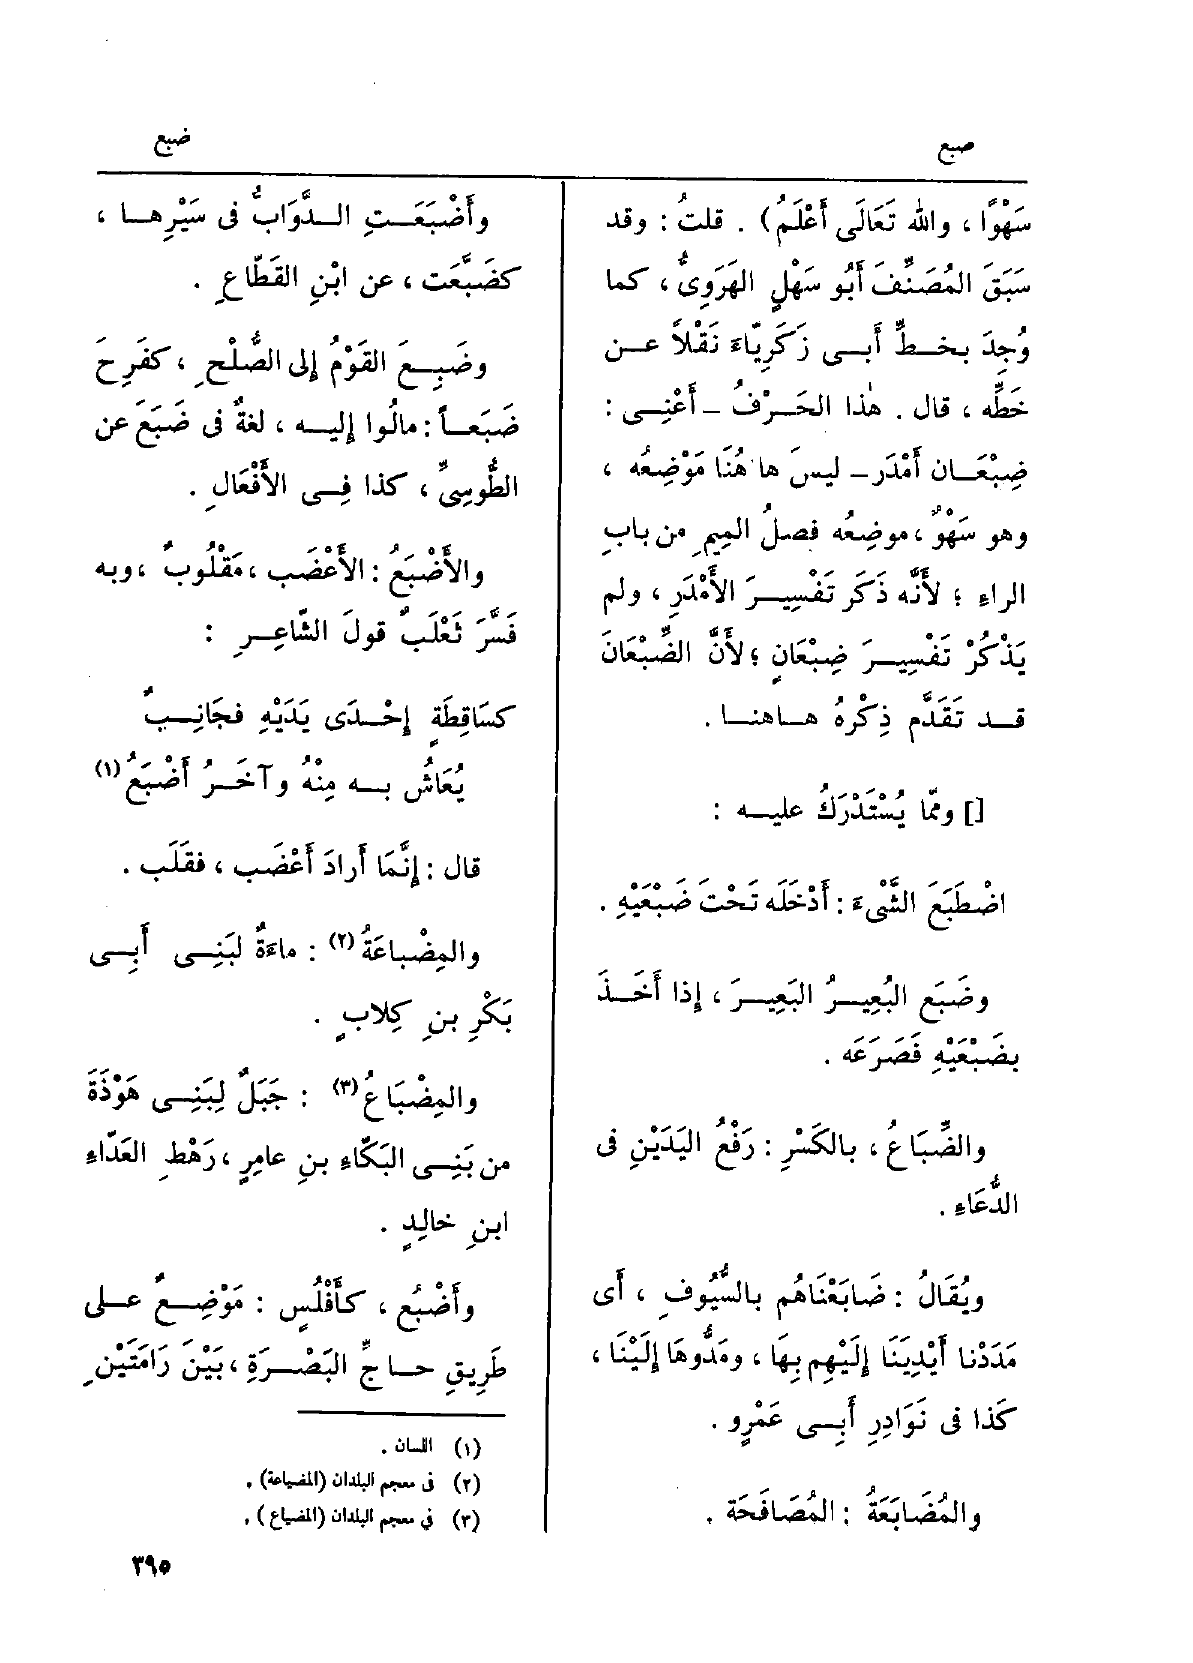 ضبع
ضبع
سَهْوًا ، والله تَعَالَى أَعْلَمُ) . قلتُ : وقد
سَبَقَ المُصَنِّفَ أَبُو سَهْلٍ الهَرَوِىُّ ، كما
وُجِدَ بخطِّ أَبى زَكَرِيّاءَ نَقْلاً عن
خَطِّه ، قال . هٰذا الحَرْفُ - أَعْنِى :
ضِبْعَان أَمْدَر - ليسَ ها هُنَا مَوْضِعُه ،
وهو سَهْوٌ ، موضِعُه فصلُ الميمِ من بابِ
الراءِ ؛ لأَنَّه ذَكَر تَفْسِيرَ الأَمْدَرِ ، ولم
يَذْكُرْ تَفْسِيرَ ضِبْعَانٍ ؛ لأَنَّ الضِّبْعَانَ
قد تَقَدَّم ذِكْرُهُ هاهنا .
[] وممّا يُسْتَدْرَكُ عليه :
اضْطَبَعَ الشَّىْءَ : أَدْخَلَه تَحْتَ ضَبْعَيْهِ .
وضَبَع البُعِيرُ البَعِيرَ ، إذا أَخَذَ
بضَبْعَيْهِ فَصَرَعَه .
والضِّبَاعُ ، بالكَسْرِ : رَفْعُ اليَدَيْنِ فى
الدُّعَاءِ .
ويُقَالُ : ضَابَعْنَاهُم بالسُّيُوفِ ، أَى
مَدَدْنا أَيْدِيَنَا إِلَيْهِم بِهَا ، ومَدُّوهَا إِلَيْنَا ،
كَذا فى نَوَادِرِ أَبِى عَمْرٍو .
والمُضَابَعَةُ : المُصَافَحَة .
وأَضْبَعَتِ الدَّوَابُّ فى سَيْرِها ،
كضَبَّعَت ، عن ابْنِ القَطّاعِ .
وضَبِعَ القَوْمُ إِلى الصُّلْحِ ، كفَرِحَ
ضَبَعاً : مالُوا إِليه ، لغةٌ فى ضَبَعَ عن
الطُّوسِىِّ ، كذا فِى الأَفْعَالِ .
والأَضْبَعُ : الأَعْضَب ، مَقْلُوبٌ ، وبه
فَسَّرَ ثَعْلَبٌ قولَ الشّاعِرِ :
كسَاقِطَةٍ إِحْدَى يَدَيْهِ فجَانِبٌ
يُعَاشُ به مِنْهُ وآخَرُ أَضْبَعُ (١)
قال : إِنَّمَا أَرادَ أَعْضَب ، فقَلَب .
والمِضْباعَةُ (٢) : ماءَةٌ لبَنِى أَبِى
بَكْرِ بنِ كِلابٍ .
والمِضْبَاعُ (٣) : جَبَلٌ لِبَنِى هَوْذَةَ
من بَنِى البَكّاءِ بنِ عامِرٍ ، رَهْطِ العَدّاءِ
ابنِ خالِدٍ .
وأَضْبُع ، كأَفْلُسٍ : مَوْضِعٌ على
طَرِيقِ حاجِّ البَصْرَةِ ، بَيْنَ رَامَتَيْنِ
(١) اللسان .
(٢) فى معجم البلدان (المضياعة) .
(٣) في معجم البلدان (المضياع) .
٣٩٥